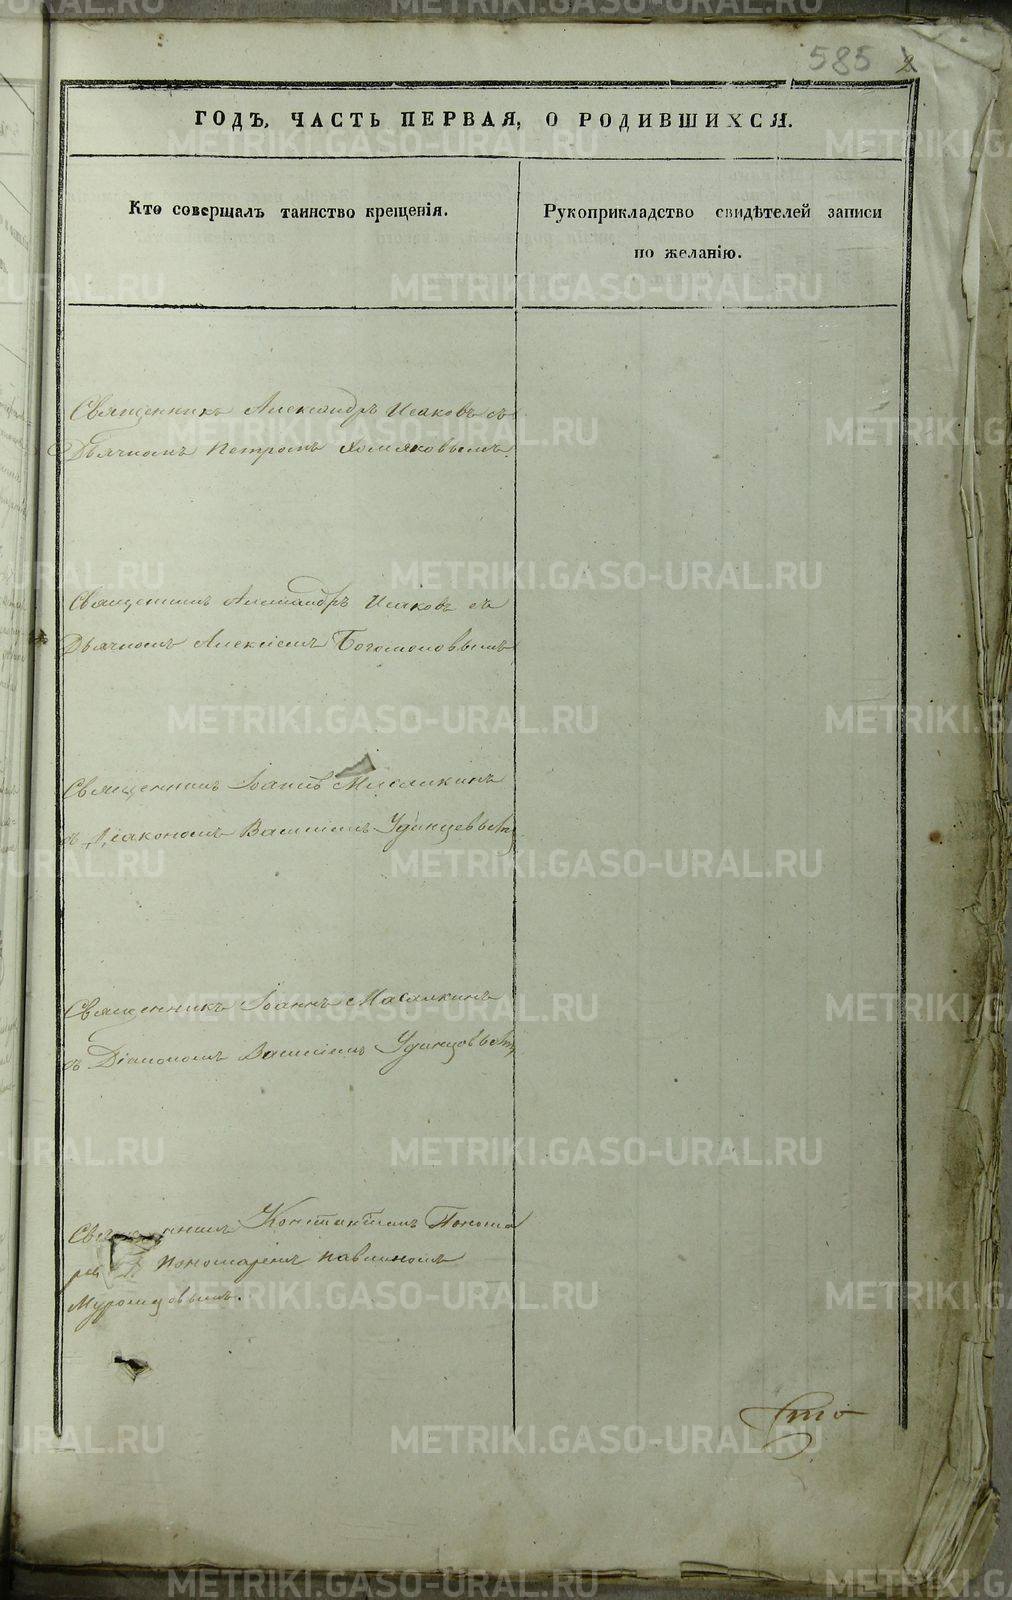 585
ГОДЪ, ЧАСТЬ ПЕРВАЯ, О РОДИВШИХСЯ.
Кто совершалъ таинство крещенія.
Рукоприкладство свидѣтелей записи
по желанію.
Священникъ Александръ Исаковъ съ
Дьячкомъ Петромъ Хомяковымъ.
Священникъ Александръ Исаковъ съ
Дьячкомъ Алексіемъ Богомоловымъ
Священникъ Іоаннъ
съ Діакономъ Василіемъ Удинцевымъ
Священникъ Іоаннъ Масалкинъ
съ Діакономъ Василіемъ Удинцовымъ
Константинъ Понома
Пономаремъ Павлиномъ
METRIKI.GASO-URAL.RU